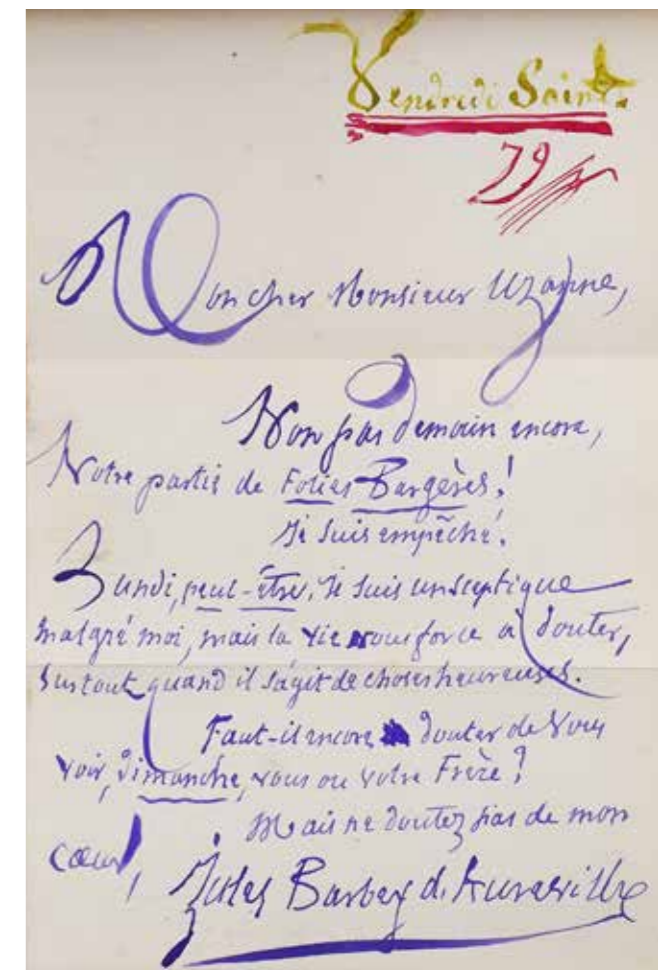 Vendredi Saint.
79
Mon cher Monsieur Uzanne,
Non pas demain encore,
Notre partie de Folies Bergères!
Je suis empêché.
Lundi, peut-être. Je suis un sceptique
malgré moi, mais la vie nous force à douter,
surtout quand il s'agit de choses heureuses.
Faut-il encore douter de vous
voir, dimanche, vous ou votre Frère?
Mais ne doutez pas de mon
cœur,
Jules Barbey d'Aurevilly